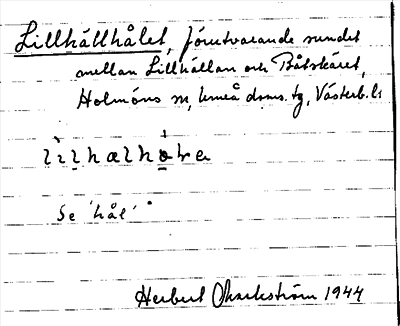 Lillhällhålet, förutvarande sundet
mellan Lillhällan och Båtskäret,
Holmöns sn, Umeå doms. tg, Västerb. l:s
Se 'hål'.
Herbert Markström 1944